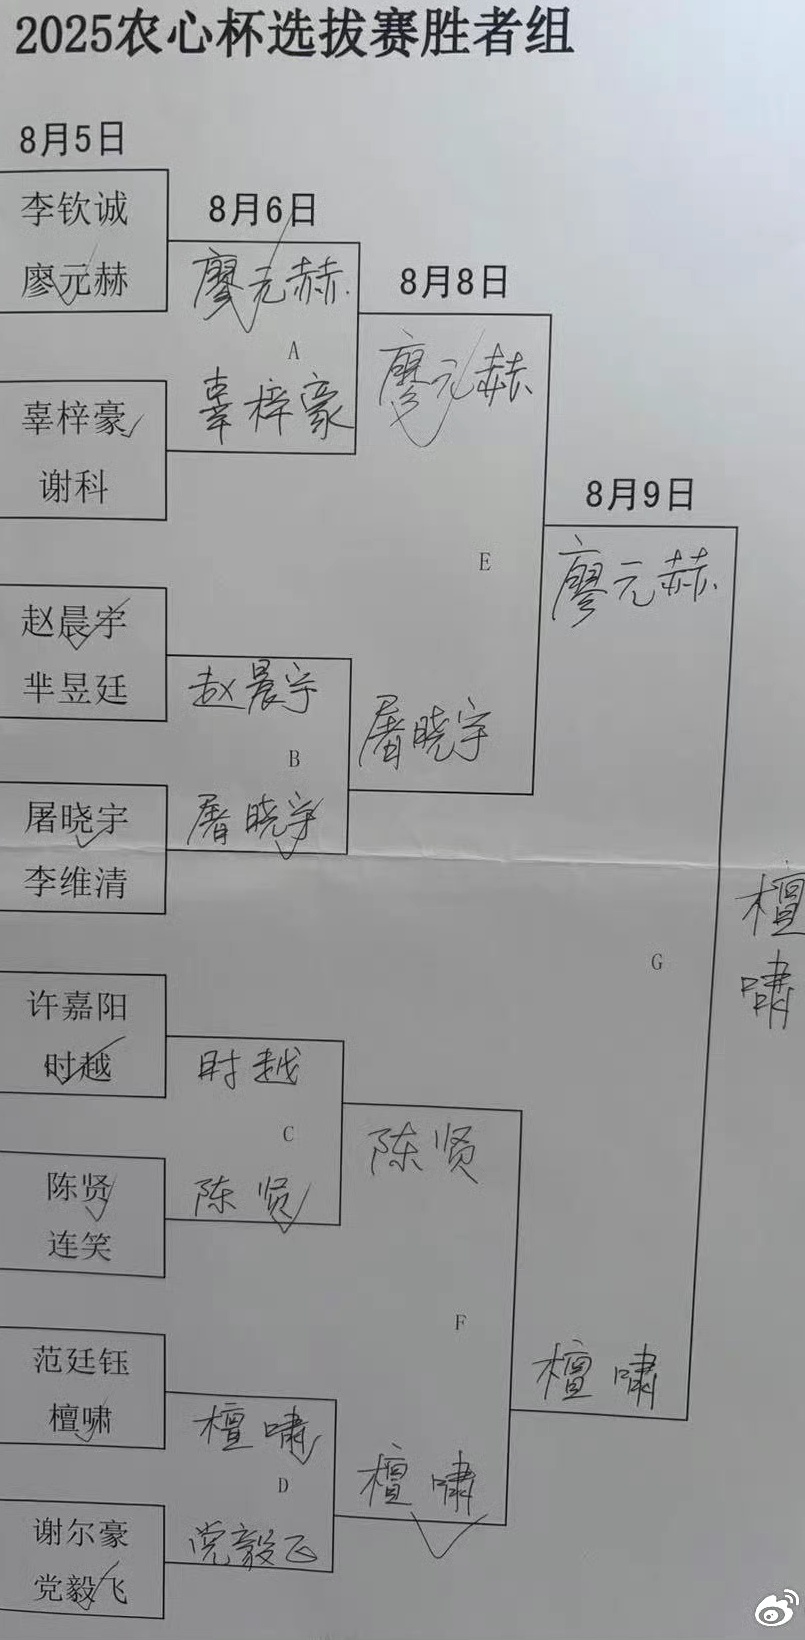 2025农心杯选拔赛胜者组
8月5日
李钦诚
廖元赫
辜梓豪
谢科
赵晨宇
芈昱廷
屠晓宇
李维清
许嘉阳
时越
陈贤
连笑
范廷钰
檀啸
谢尔豪
党毅飞
8月6日
廖元赫
A
辜梓豪
赵晨宇
B
屠晓宇
时越
C
陈贤
檀啸
D
党毅飞
8月8日
廖元赫
E
屠晓宇
陈贤
F
檀啸
8月9日
廖元赫
G
檀啸
檀
啸